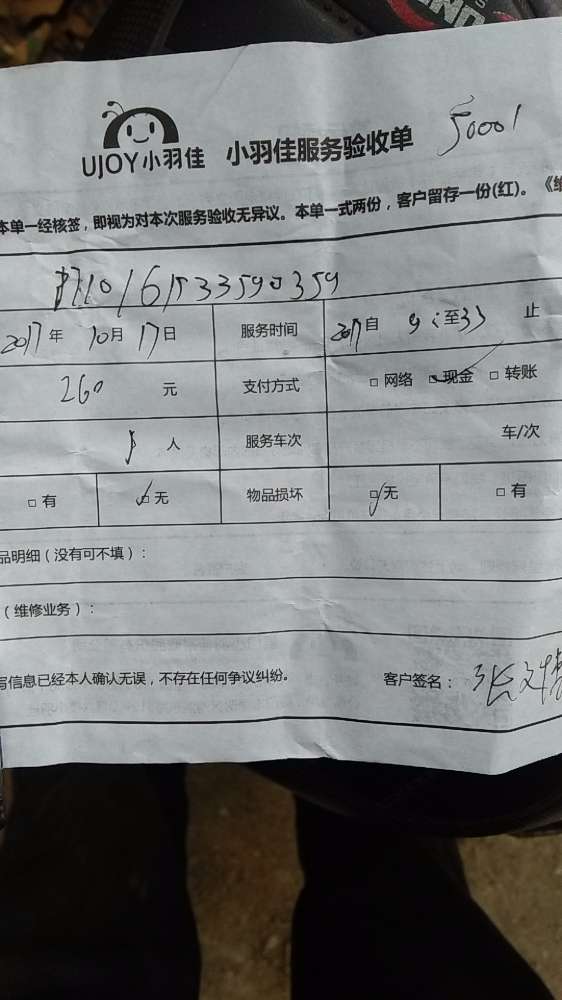 UJOY小羽佳 小羽佳服务验收单 50001
本单一经核签，即视为对本次服务验收无异议。本单一式两份，客户留存一份(红)。《维
10161533590359
2017年 10月 17日 服务时间 2017自 至 止
260 元 支付方式 □网络 □现金 □转账
人 服务车次 车/次
□有 □无 物品损坏 □无 □有
品明细（没有可不填）：
（维修业务）：
写信息已经本人确认无误，不存在任何争议纠纷。 客户签名： 张文博